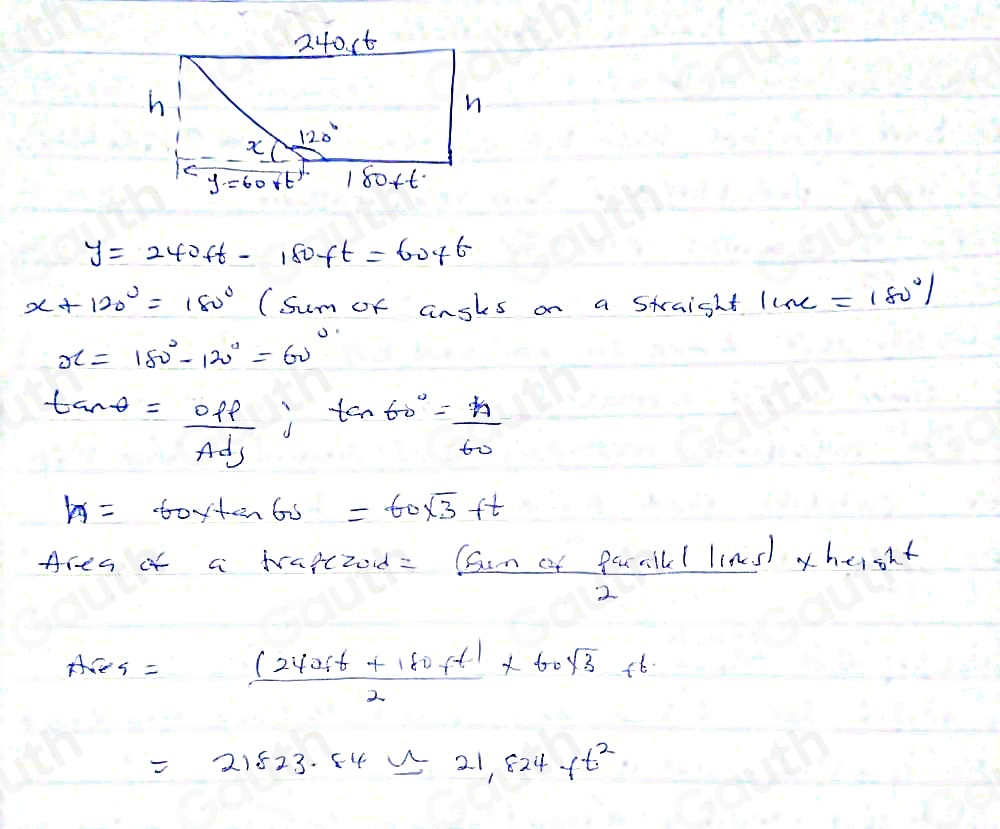 240ft
h
h
x
120°
y=60ft
180ft.
y = 240ft - 180ft = 60ft
x + 120° = 180° (Sum of angles on a straight line = 180°)
x = 180° - 120° = 60°
tanθ = opp / Adj ; tan 60° = h / 60
h = 60×tan 60 = 60√3 ft
Area of a trapezoid = (Sum of parallel lines) × height / 2
Area = (240ft + 180ft) × 60√3 ft. / 2
= 21823.84 ≃ 21,824 ft².
Gauth